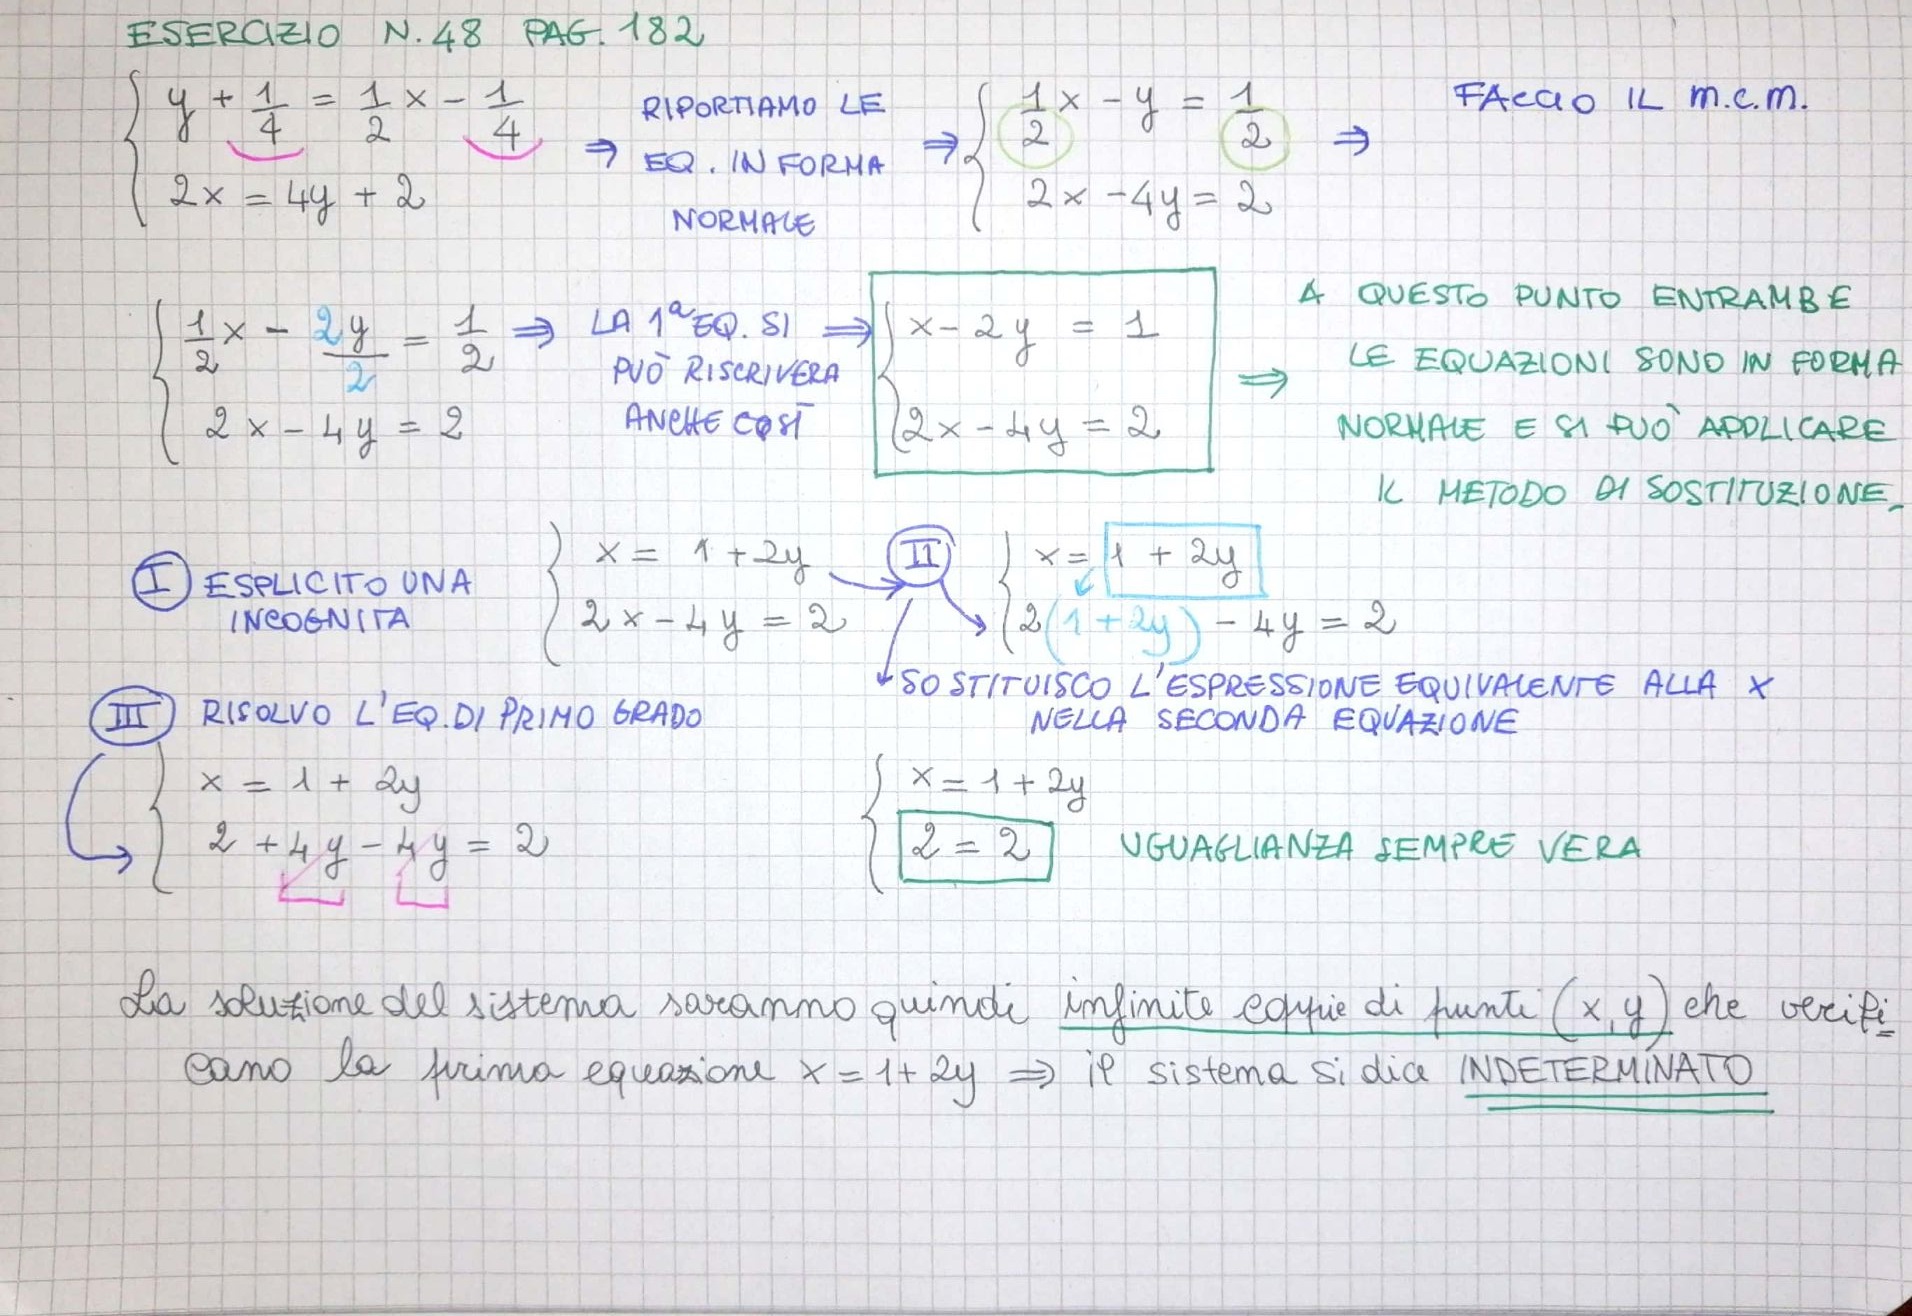 ESERCIZIO N. 48 PAG. 182
y + 1/4 = 1/2 x - 1/4
2x = 4y + 2
⇒ RIPORTIAMO LE
EQ. IN FORMA
NORMALE
⇒ 1/2 x - y = 1/2
2x - 4y = 2
⇒ FACCIO IL m.c.m.
1/2 x - 2y/2 = 1/2
2x - 4y = 2
⇒ LA 1ª EQ. SI
PUÒ RISCRIVERA
ANCHE COSÌ
⇒ x - 2y = 1
2x - 4y = 2
⇒ A QUESTO PUNTO ENTRAMBE
LE EQUAZIONI SONO IN FORMA
NORMALE E SI PUÒ APPLICARE
IL METODO DI SOSTITUZIONE.
I ESPLICITO UNA
INCOGNITA
x = 1 + 2y
2x - 4y = 2
II
x = 1 + 2y
2(1 + 2y) - 4y = 2
SOSTITUISCO L'ESPRESSIONE EQUIVALENTE ALLA X
NELLA SECONDA EQUAZIONE
III RISOLVO L'EQ. DI PRIMO GRADO
x = 1 + 2y
2 + 4y - 4y = 2
x = 1 + 2y
2 = 2 UGUAGLIANZA SEMPRE VERA
La soluzione del sistema saranno quindi infinite coppie di punti (x, y) che verifi=
cano la prima equazione x = 1 + 2y ⇒ il sistema si dice INDETERMINATO